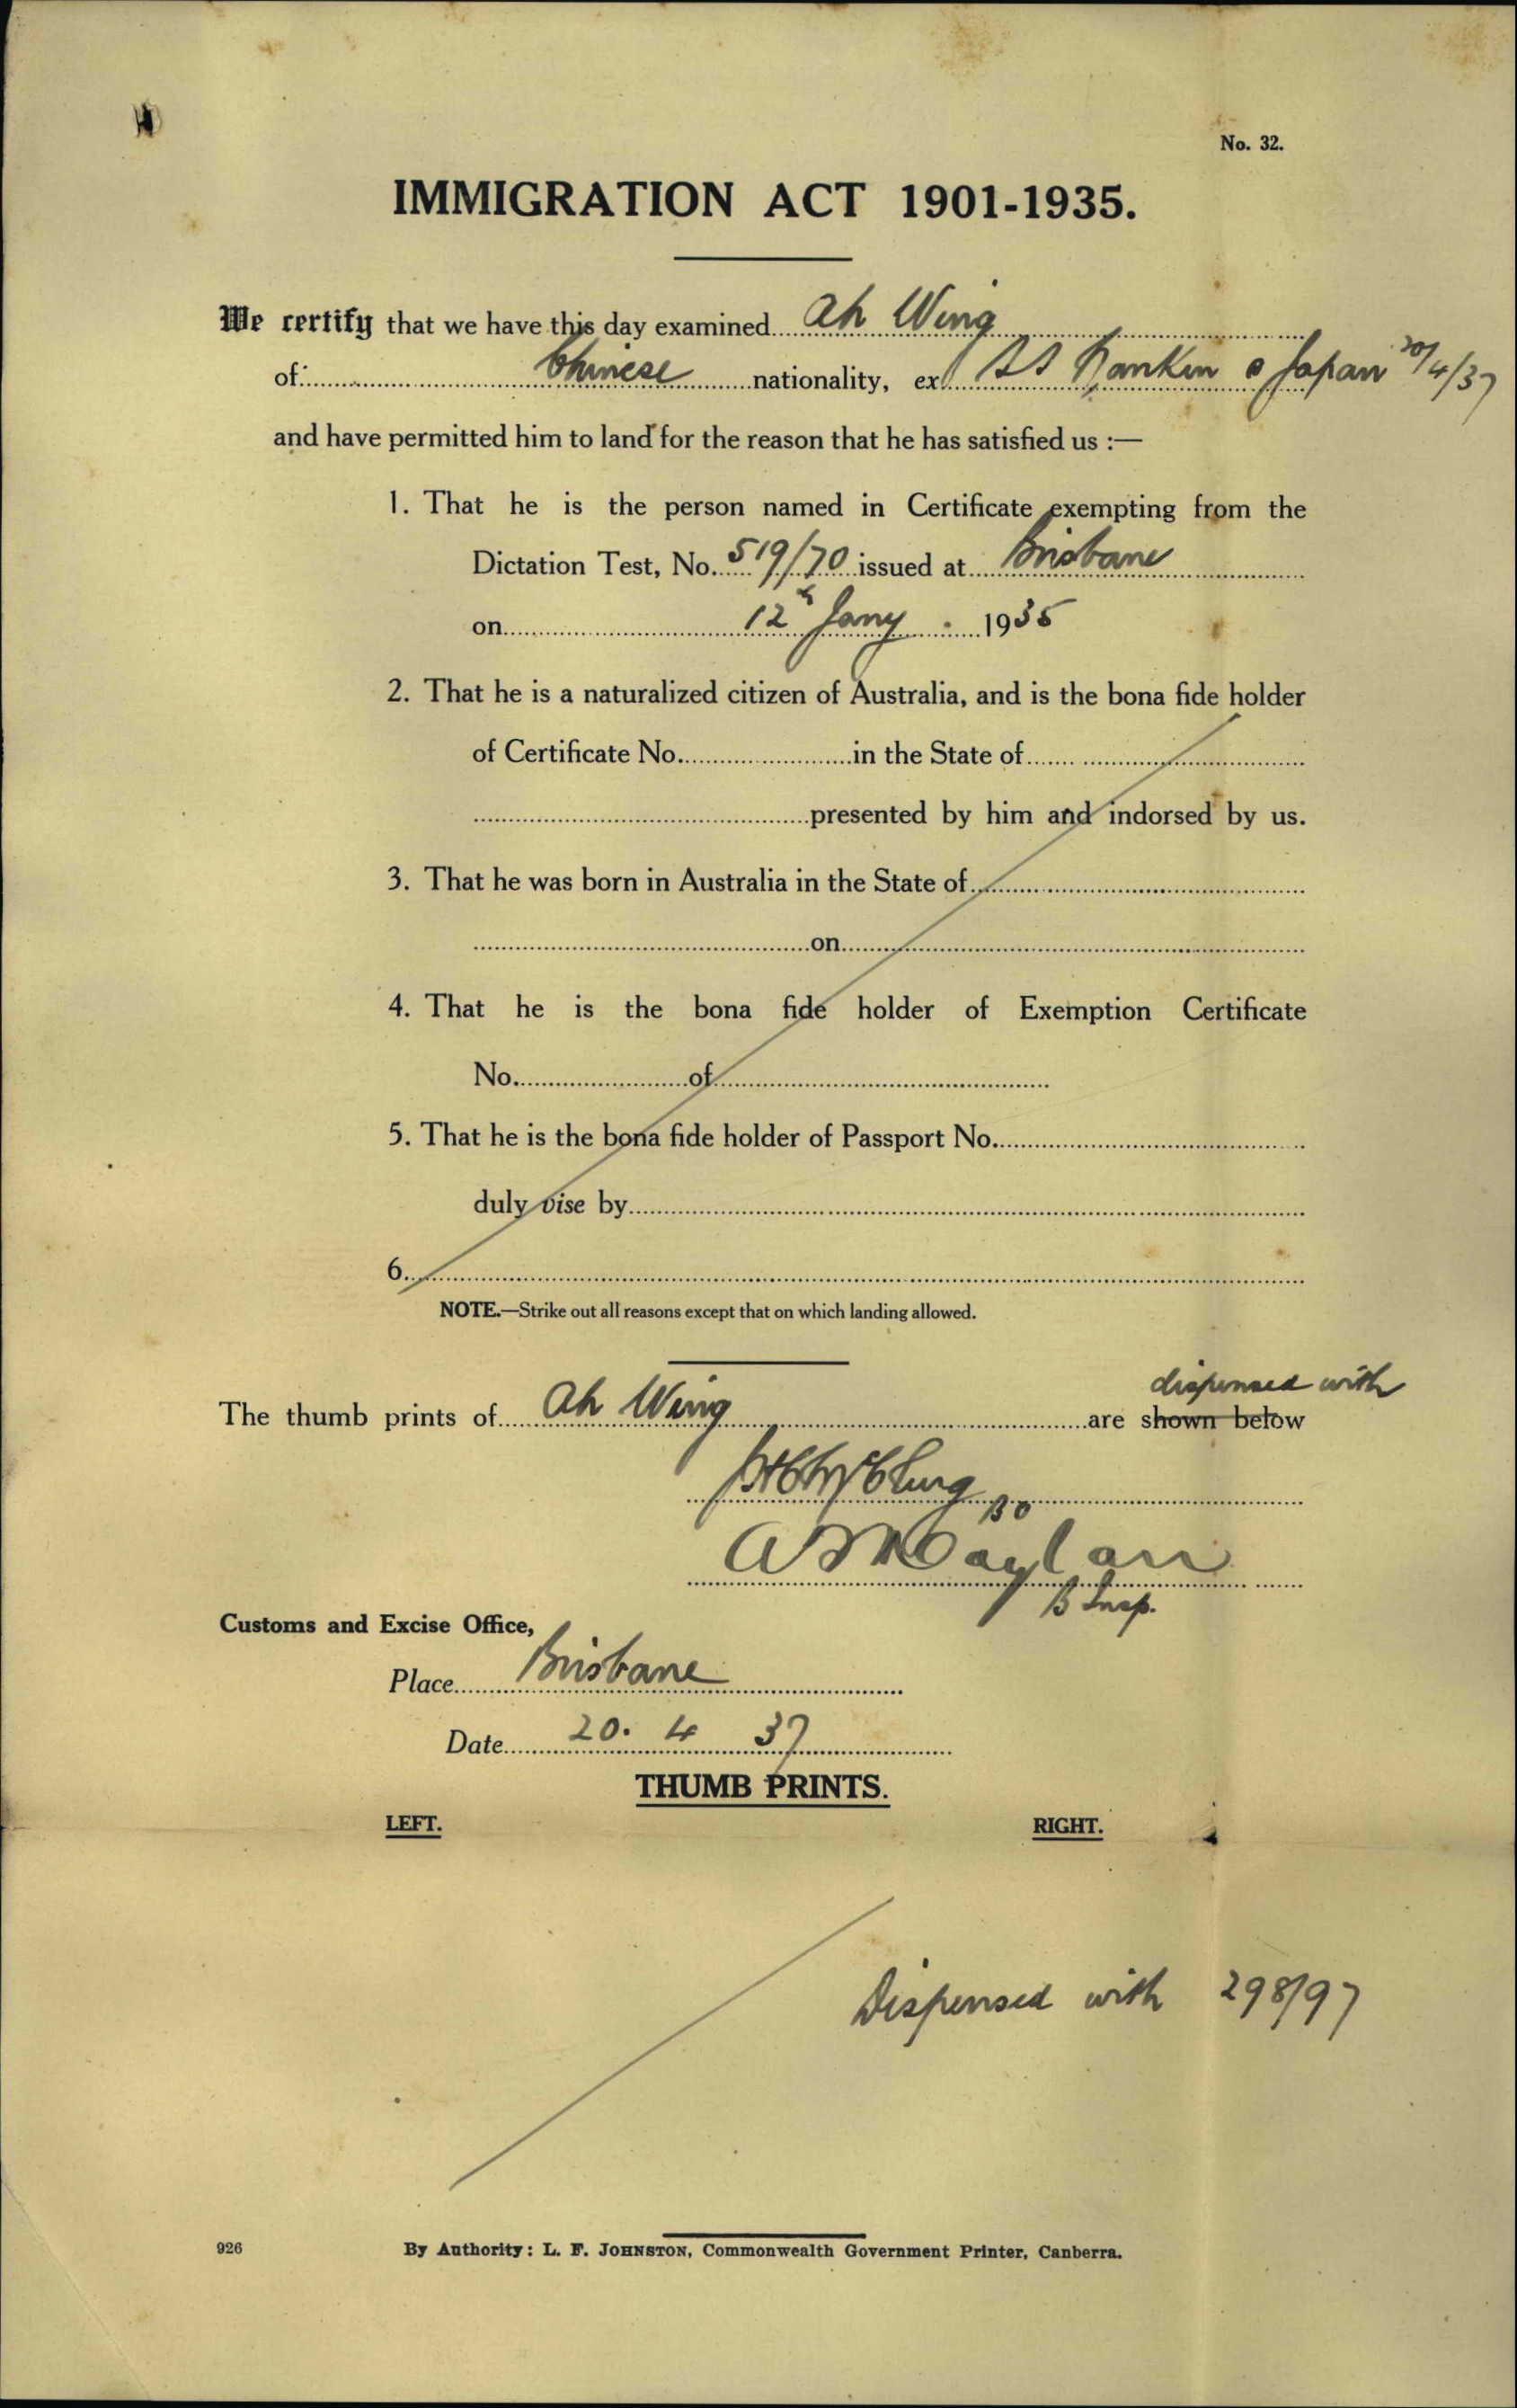 No. 32.
IMMIGRATION ACT 1901-1935.
We certify that we have this day examined Ah Wing
of Chinese nationality, ex SS Nankin o Japan 20/4/37
and have permitted him to land for the reason that he has satisfied us :—
1. That he is the person named in Certificate exempting from the
Dictation Test, No. 519/70 issued at Brisbane
on 12th Jany 1935
2. That he is a naturalized citizen of Australia, and is the bona fide holder
of Certificate No. in the State of
presented by him and indorsed by us.
3. That he was born in Australia in the State of
on
4. That he is the bona fide holder of Exemption Certificate
No. of
5. That he is the bona fide holder of Passport No.
duly vise by
6.
NOTE.—Strike out all reasons except that on which landing allowed.
dispensed with
The thumb prints of Ah Wing are shown below
BO
B Insp.
Customs and Excise Office,
Place Brisbane
Date 20. 4 37
THUMB PRINTS.
LEFT. RIGHT.
Dispensed with 298/97
926 By Authority: L. F. JOHNSTON, Commonwealth Government Printer, Canberra.